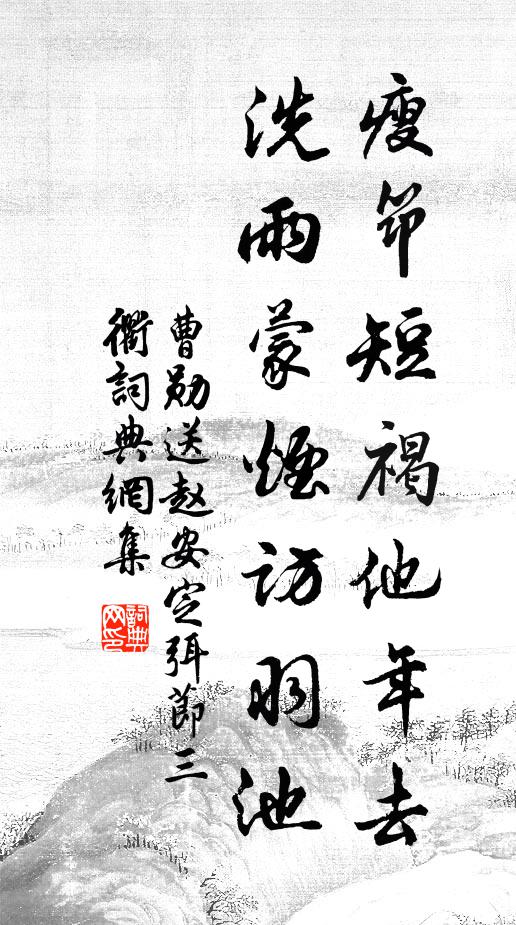 瘦筇短褐他年去
洗雨蒙煙訪羽池
曹勛送赵安定弭節三
衢詞典網集
詞典网印